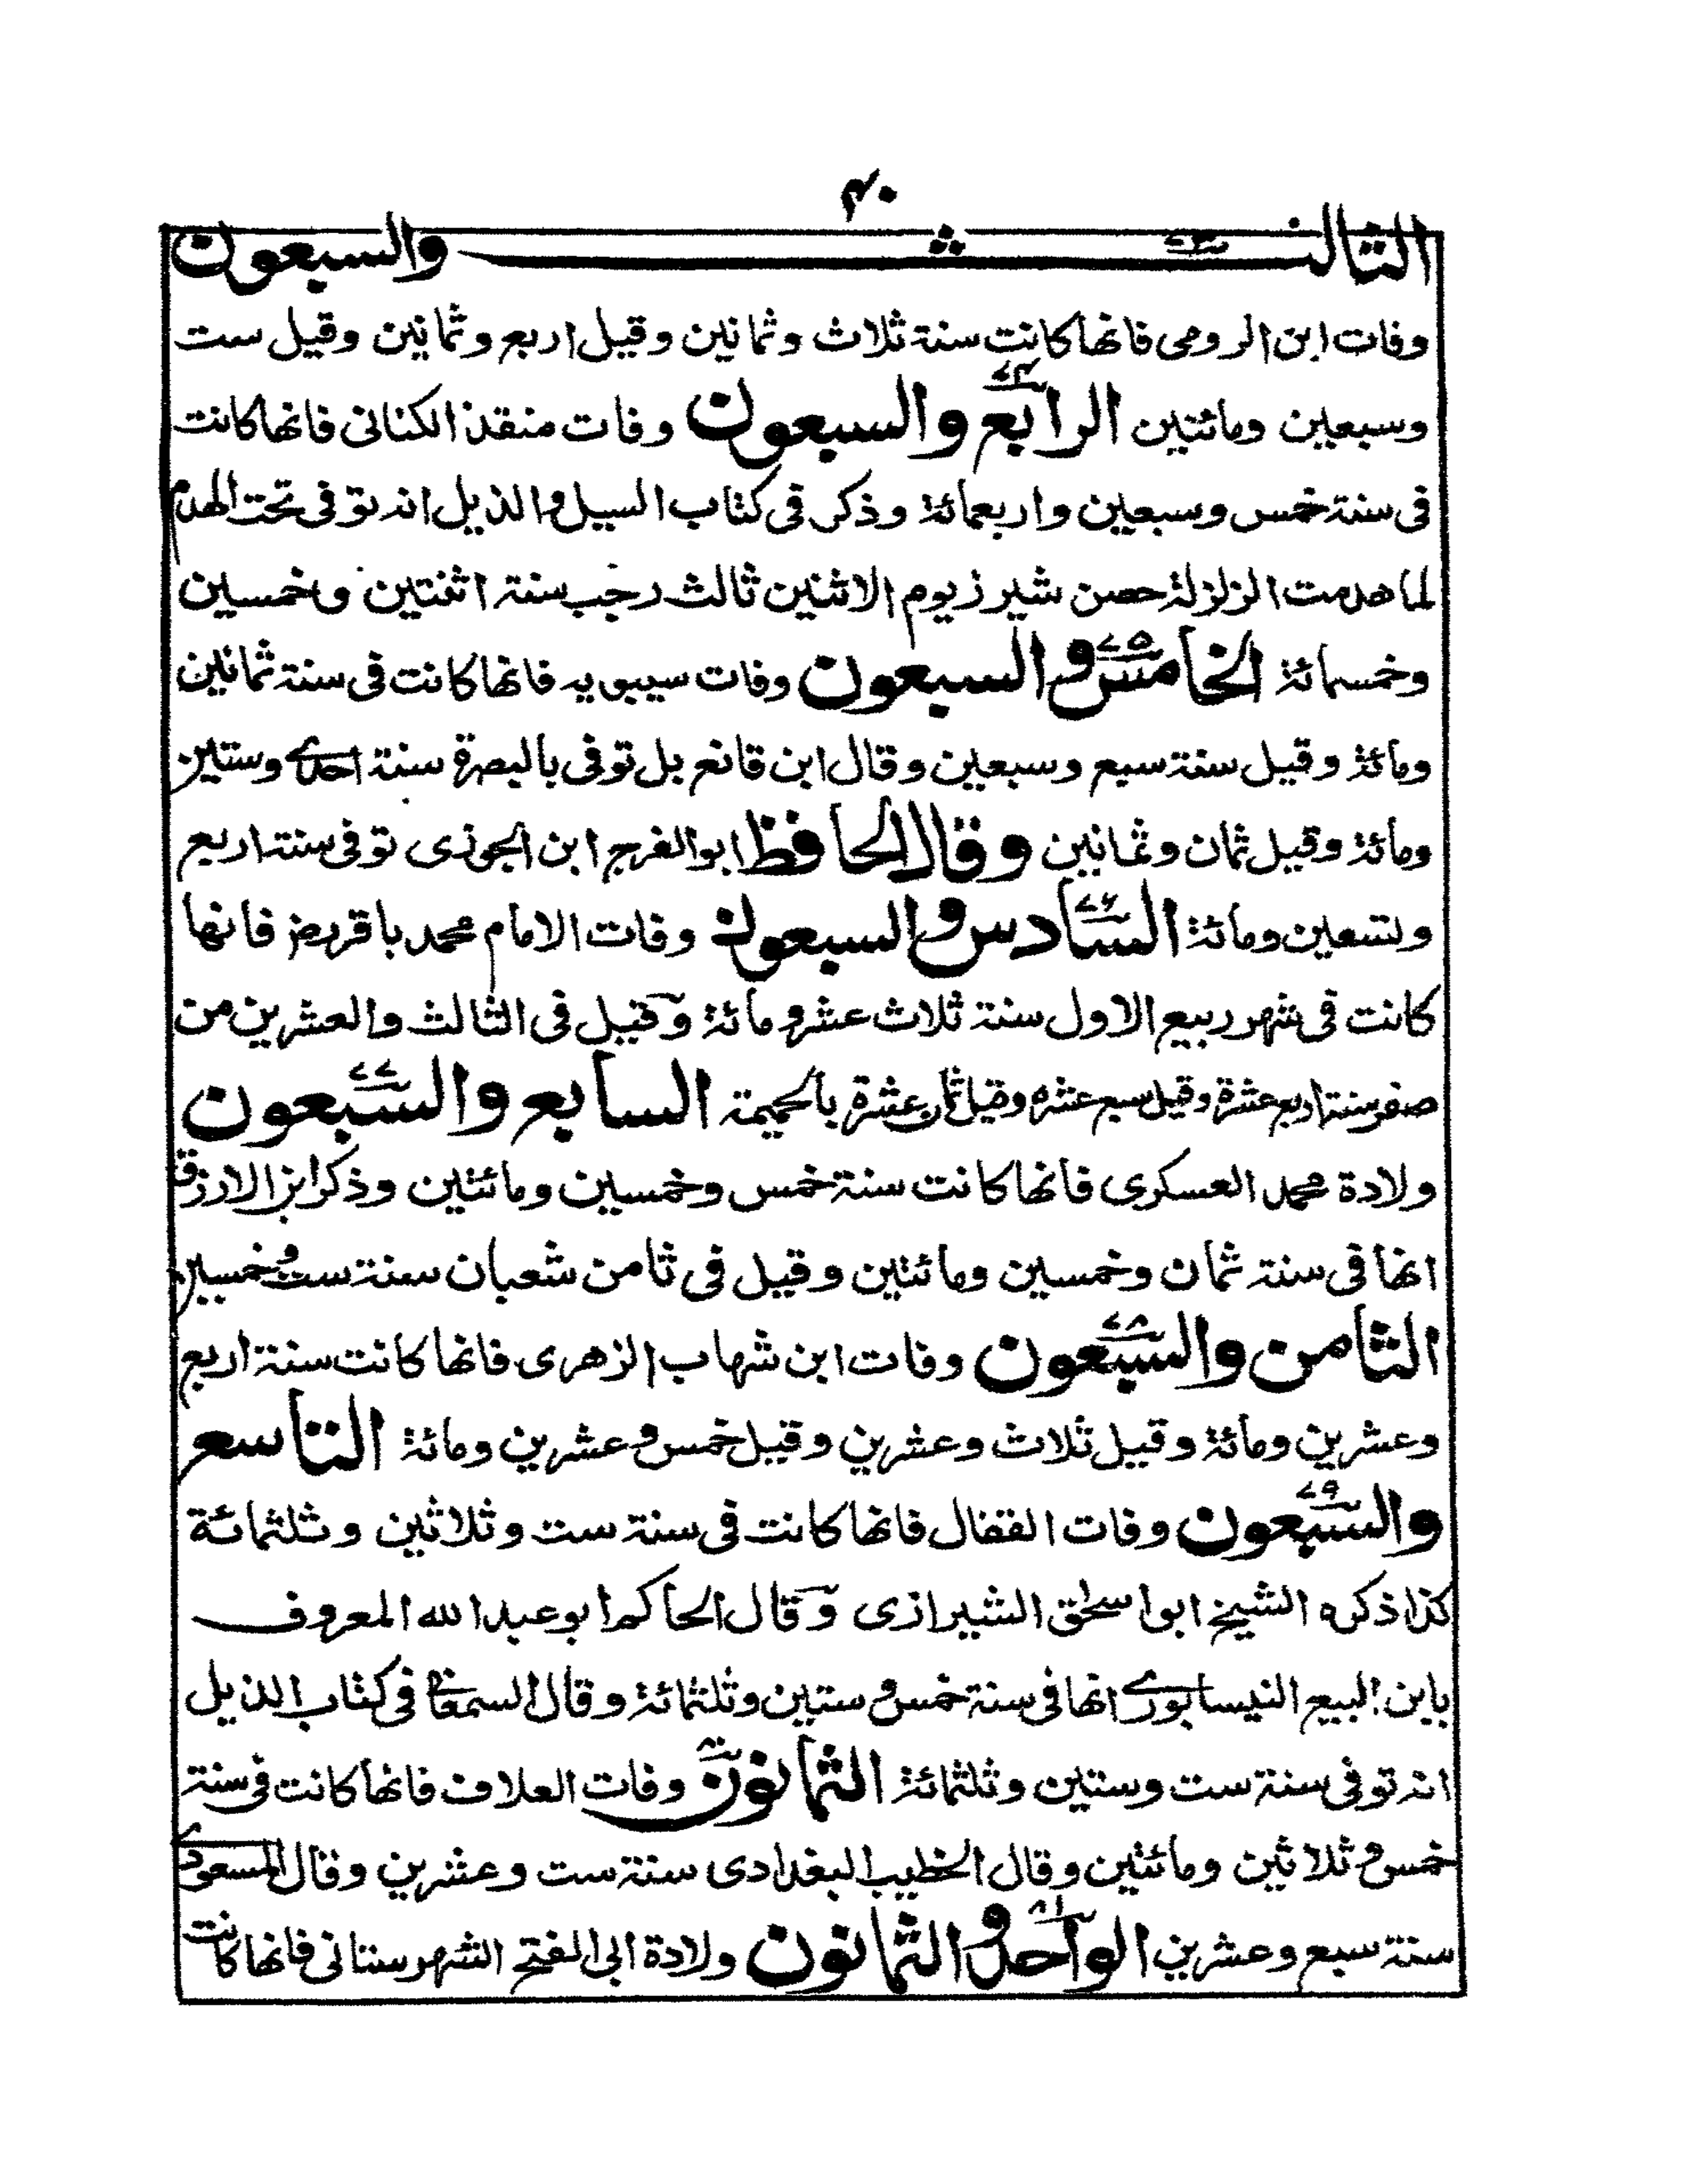 ۴۰
الثالث ۷۳ والسبعون
وفات ابن الرومی فانها کانت سنة ثلاث وثمانین وقیل اربع وثمانین وقیل ست
وسبعین ومائتین الرابع والسبعون ۷۴ وفات منقذ الکنانی فانها کانت
فی سنة خمس وسبعین واربعمائة وذکر فی کتاب السیل والذیل انه توفی تحت الهدم
لما هدمت الزلزلة حصن شیرز یوم الاثنین ثالث رجب سنة اثنتین وخمسین
وخمسمائة الخامس والسبعون ۷۵ وفات سیبویه فانها کانت فی سنة ثمانین
ومائة وقیل سنة سبع وسبعین وقال ابن قانع بل توفی بالبصرة سنة احدے وستین
ومائة وقیل ثمان وثمانین وقال الحافظ ابو الفرج ابن الجوزی توفی سنة اربع
وتسعین ومائة السادس والسبعون ۷۶ وفات الامام محمد باقر رض فانها
کانت فی شهر ربیع الاول سنة ثلاث عشر ومائة وقیل فی الثالث والعشرین من
صفر سنة اربع عشرة وقیل سبع عشره وقیل ثمان عشرة بالحمیمة السابع والسبعون ۷۷
ولادة محمد العسکری فانها کانت سنة خمس وخمسین ومائتین وذکر ابن الارزق
انها فی سنة ثمان وخمسین ومائتین وقیل فی ثامن شعبان سنة ست وخمسین
الثامن والسبعون ۷۸ وفات ابن شهاب الزهری فانها کانت سنة اربع
وعشرین ومائة وقیل ثلاث وعشرین وقیل خمس وعشرین ومائة التاسع
والسبعون ۷۹ وفات القفال فانها کانت فی سنة ست وثلاثین وثلثمائة
کذا ذکره الشیخ ابو اسحق الشیرازی وقال الحاکم ابو عبد الله المعروف
بابن البیع النیسابورے انها فی سنة خمس وستین وثلثمائة وقال السمعانے فی کتاب الذیل
انه توفی سنة ست وستین وثلثمائة الثمانون ۸۰ وفات العلاف فانها کانت فی سنة
خمس وثلاثین ومائتین وقال الخطیب البغدادی سنة ست وعشرین وقال المسعودے
سنة سبع وعشرین الواحد والثمانون ۸۱ ولادة ابی الفتح الشهرستانی فانها کانت